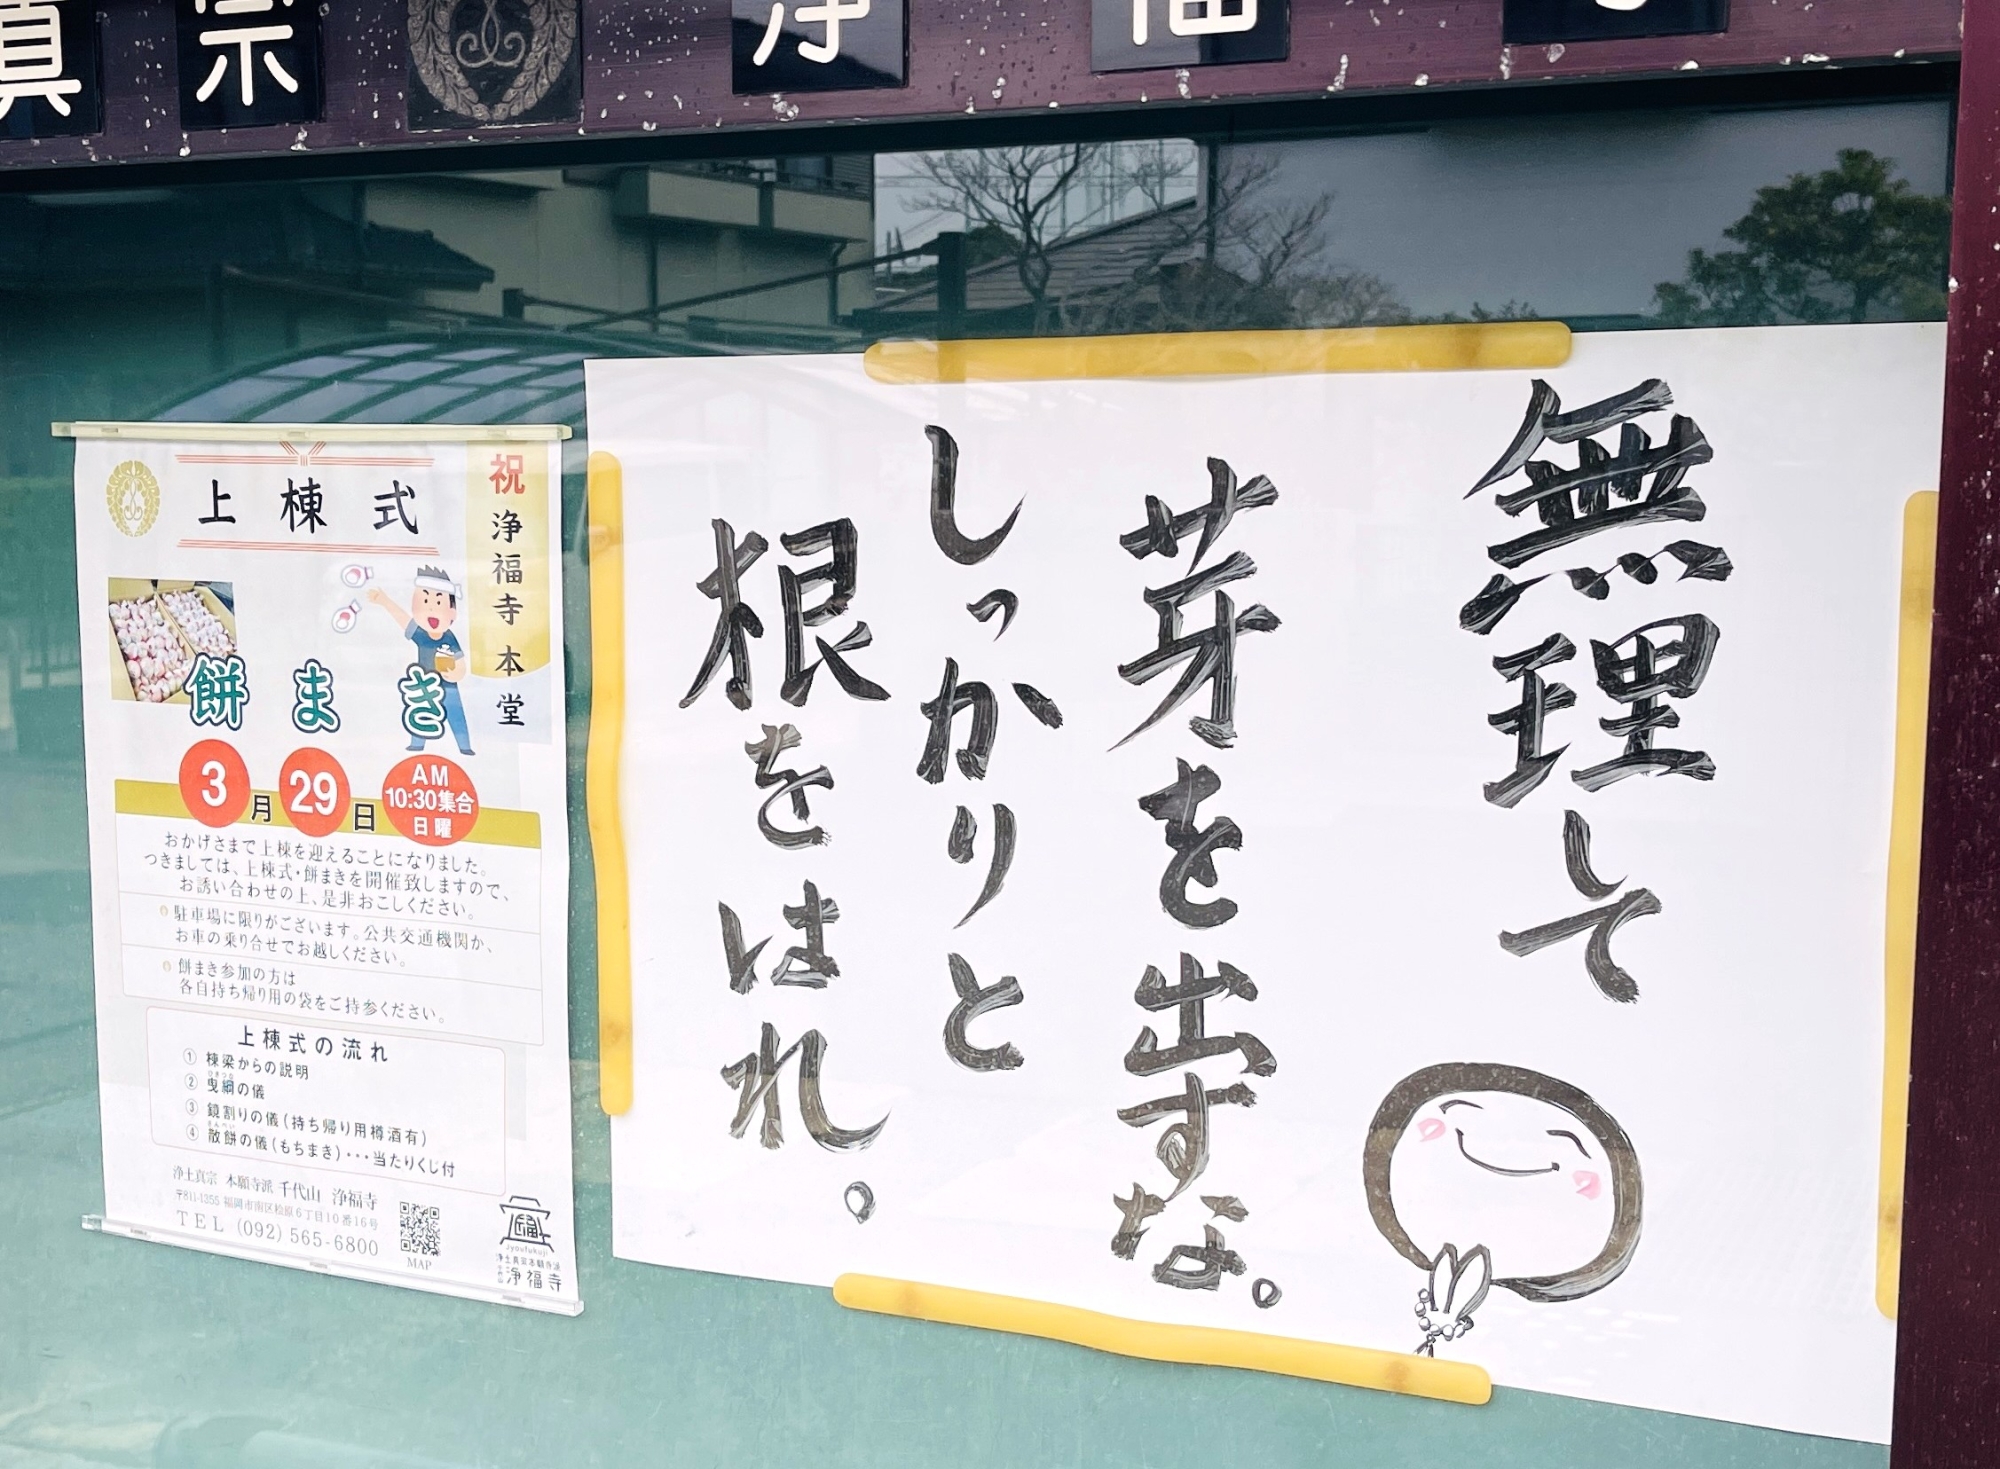 真宗 浄福寺
無理して
芽を出すな。
しっかりと
根をはれ。
祝 浄福寺 本堂
上棟式
餅まき
3月29日
AM
10:30集合
日曜
おかげさまで上棟を迎えることになりました。
つきましては、上棟式・餅まきを開催致しますので、
お誘い合わせの上、是非おこしください。
駐車場に限りがございます。公共交通機関か、
お車の乗り合せでお越しください。
餅まき参加の方は
各自持ち帰り用の袋をご持参ください。
上棟式の流れ
① 棟梁からの説明
② 曳綱の儀
③ 鏡割りの儀(持ち帰り用樽酒有)
④ 散餅の儀(もちまき)・・・当たりくじ付
浄土真宗 本願寺派 千代山 浄福寺
〒811-1355 福岡市南区桧原6丁目10番16号
TEL (092) 565-6800
MAP
Jyoufukuji
浄土真宗本願寺派
浄福寺